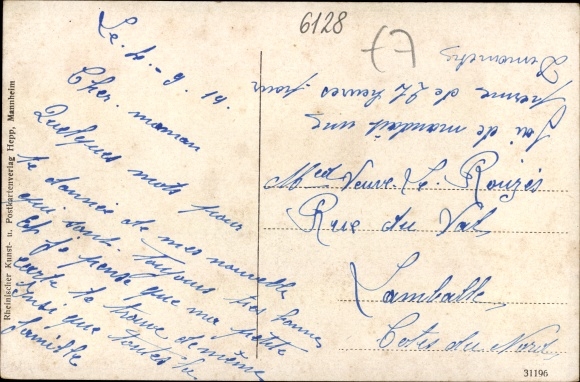 6128
Le 4-9-19.
Cher. maman
Quelques mots pour
te donner de mes nouvelle
qui sont toujours très bonnes
et je pense que ma petite
carte te trouve de même
Ainsi que toutes la
famille
J'ai demandait une
perme de 24 heures pour
Med Veuve Le Rouzès
Rue du Val
Lamballe,
Cotes du Nord
Rheinischer Kunst- u. Postkartenverlag Hepp, Mannheim
31196